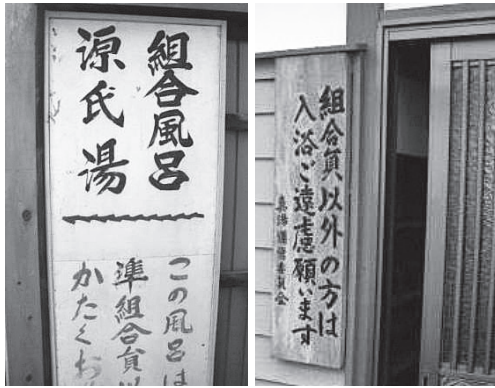 組合風呂
源氏湯
この風呂は
準組合員以
かたくお
組合員以外の方は
入浴ご遠慮願います